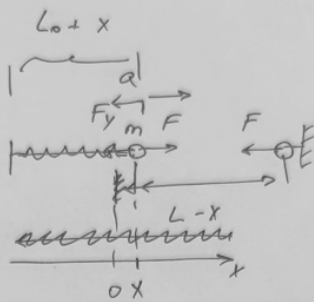 L₀ + x
a
Fy m F F
L - x
0 x x